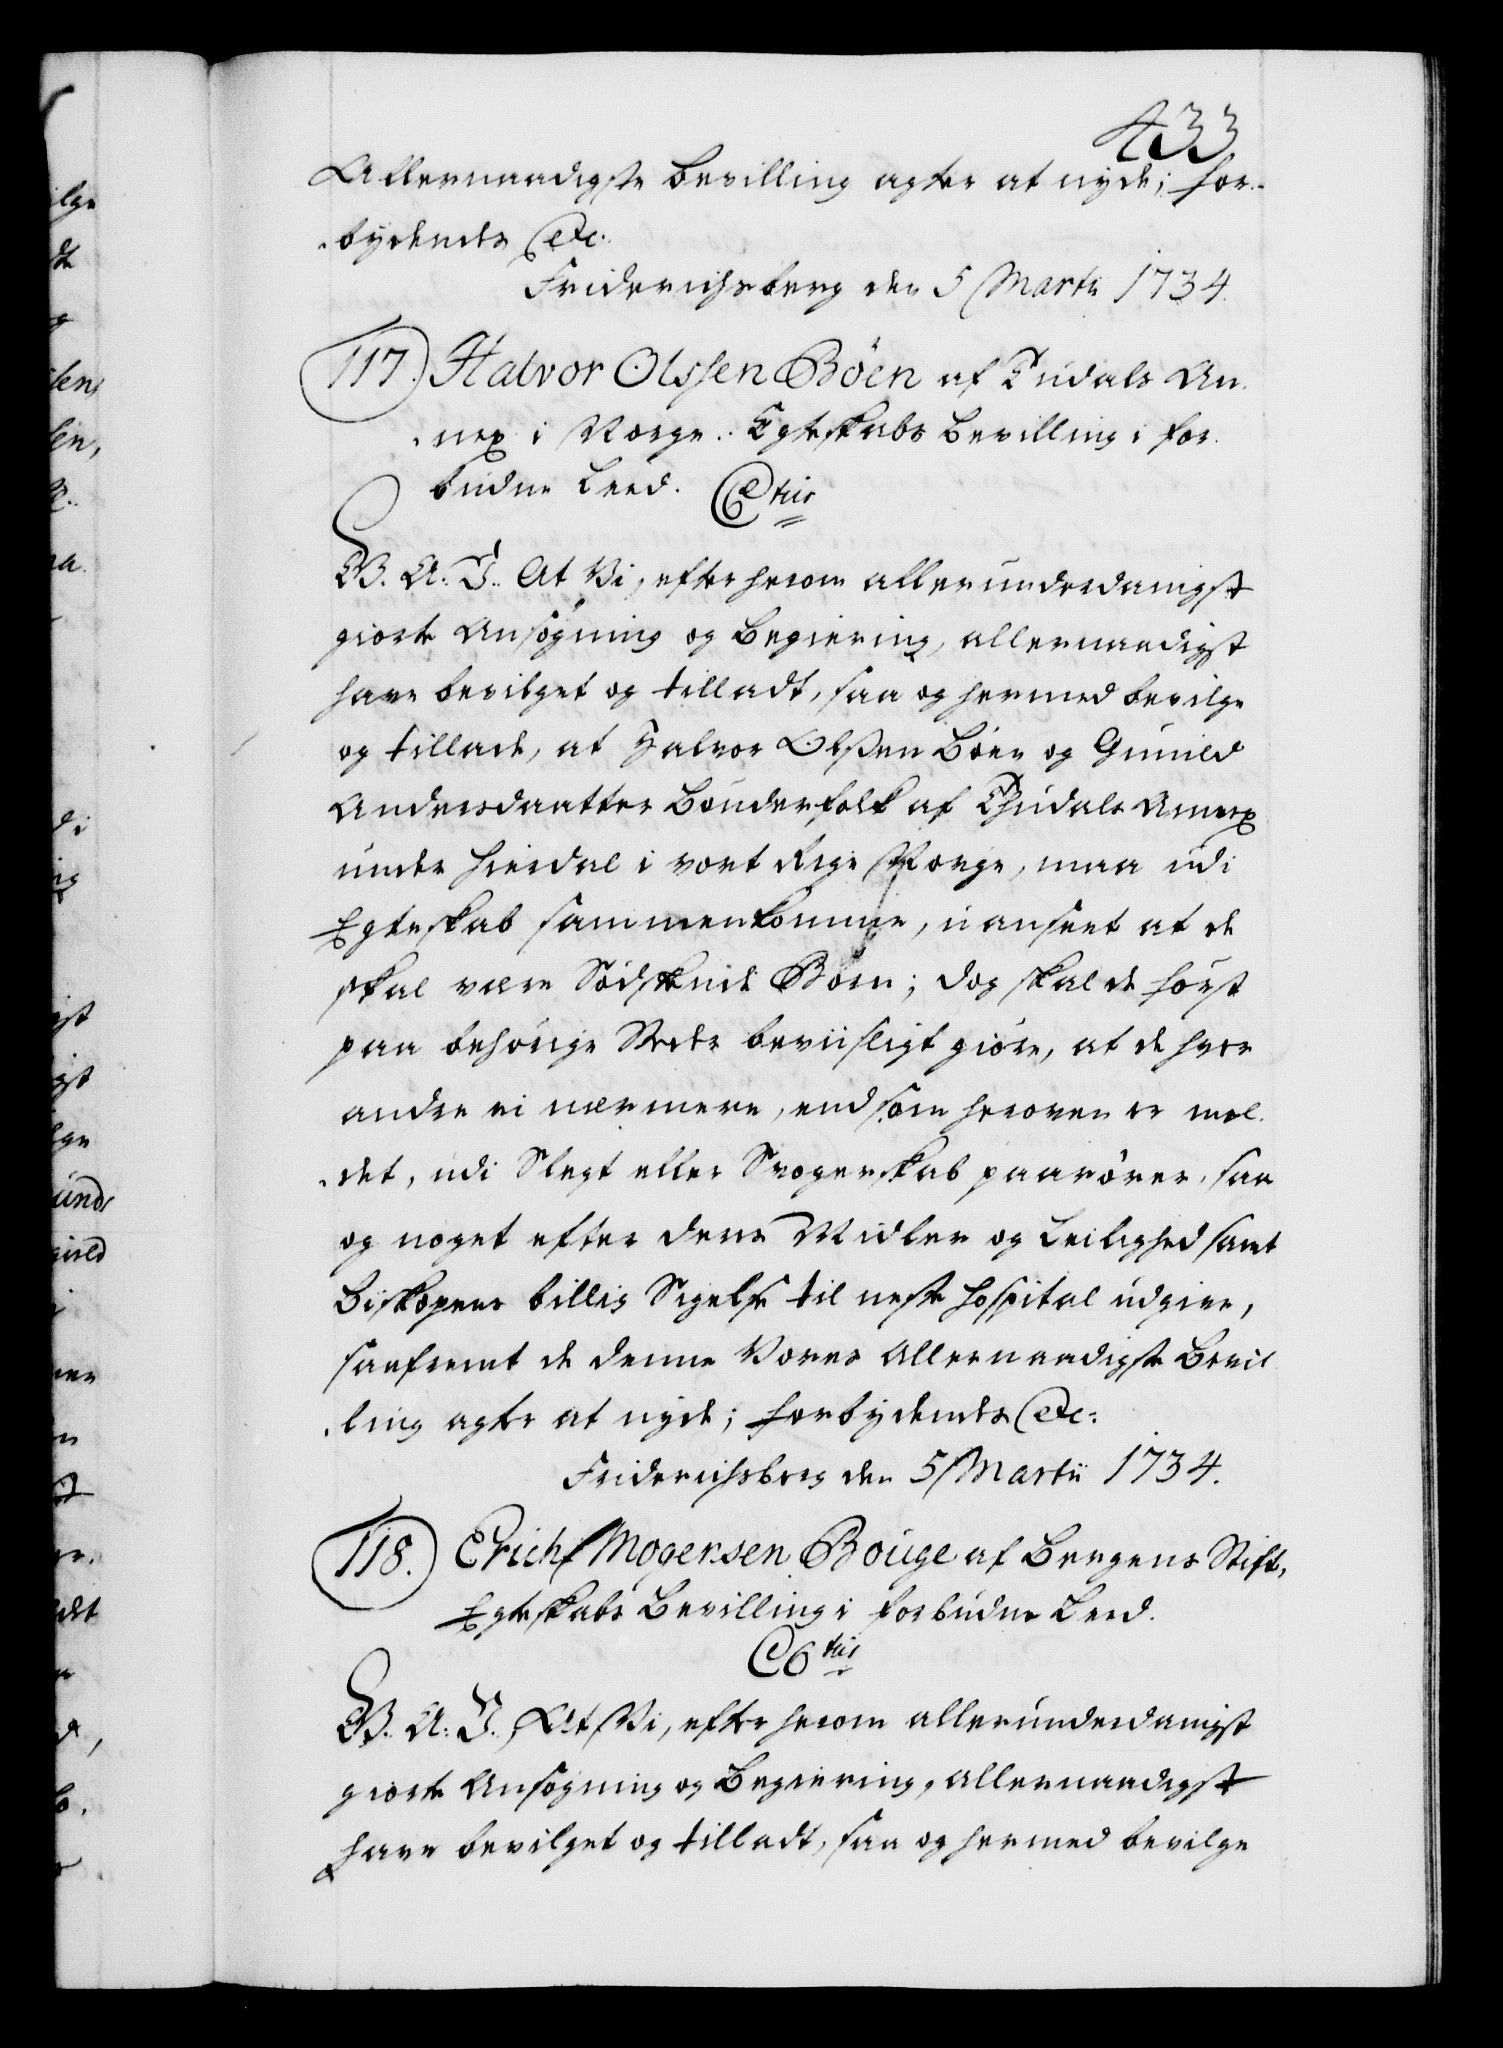 433
Allernaadigste Bevilling agter at nyde; for-
bydendes etc.
Friderichsberg den 5 Martii 1734.
117. Halvor Olssen Böen af Tudals An-
nex i Norge. Egteskabs Bevilling i for-
budne Leed. C 6 tus
G. A. V. At Vi, efter herom allerunderdanigst
giorte Ansögning og Begiering, allernaadigst
have bevilget og tilladt, saa og hermed bevilge
og tillade, at Halvor Olssen Böen og Gunild
Andersdaatter Bönderfolk af Thudals Annex
under Hierdal i vort Rige Norge, maa udi
Egteskab sammenkomme, uanseet at de
skal være Södskende Börn; dog skal de först
paa behörige Steder beviisligt giöre, at de hver
andre ei nærmere, end som heroven er mel-
det, udi Slegt eller Svogerskab paarörer, saa
og noget efter deres Midler og Leilighed samt
Biskopens billig Sigelse til neste Hospital udgive,
saafremt de denne Vores Allernaadigste Bevil-
ling agter at nyde; forbydendes etc.
Friderichsberg den 5 Martii 1734.
118. Erich Mogensen Bouge af Bergens Stift,
Egteskabs Bevilling i forbudne Leed.
C 6 tus
G. A. V. At Vi, efter herom allerunderdanigst
giorte Ansögning og Begiering, allernaadigst
have bevilget og tilladt, saa og hermed bevilge